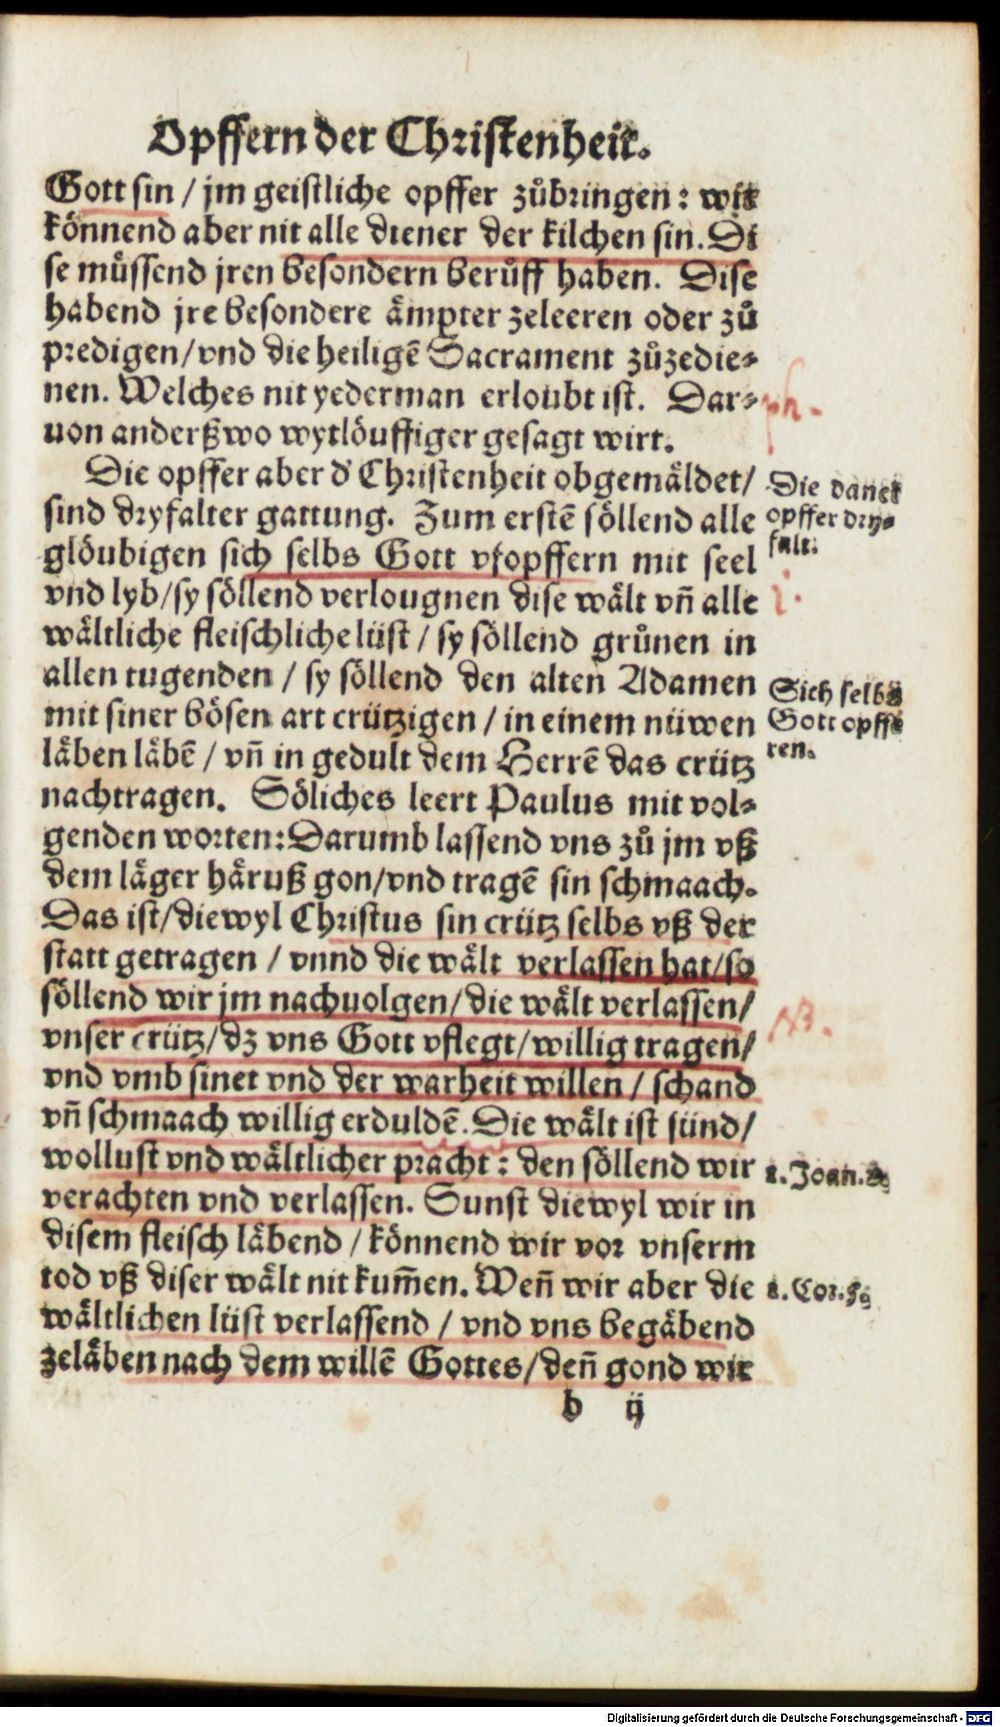 Opffern der Christenheit.
Gott sin / jm geistliche opffer zůbringen: wir
könnend aber nit alle diener der kilchen sin. Di
se müssend jren besondern berůff haben. Dise
habend jre besondere ämpter zeleeren oder zů
predigen/vnd die heiligē Sacrament zůzedie⸗
nen. Welches nit yederman erloubt ist. Dar⸗
uon anderßwo wytlöuffiger gesagt wirt.
Die opffer aber d' Christenheit obgemäldet/
sind dryfalter gattung. Zum erstē söllend alle
glöubigen sich selbs Gott vfopffern mit seel
vnd lyb/sy söllend verlougnen dise wält vn̄ alle
wältliche fleischliche lüst / sy söllend grůnen in
allen tugenden / sy söllend den alten Adamen
mit siner bösen art crützigen / in einem nüwen
läben läbē / vn̄ in gedult dem Herrē das crütz
nachtragen. Söliches leert Paulus mit vol⸗
genden worten: Darumb lassend vns zů jm vß
dem läger häruß gon/vnd tragē sin schmaach.
Das ist/diewyl Christus sin crütz selbs vß der
statt getragen / vnnd die wält verlassen hat/so
söllend wir jm nachuolgen/die wält verlassen/
vnser crütz/dz vns Gott vflegt/willig tragen/
vnd vmb sinet vnd der warheit willen / schand
vn̄ schmaach willig erduldē. Die wält ist sünd/
wollust vnd wältlicher pracht: den söllend wir
verachten vnd verlassen. Sunst diewyl wir in
disem fleisch läbend / könnend wir vor vnserm
tod vß diser wält nit kum̄en. Wen̄ wir aber die
wältlichen lüst verlassend / vnd vns begäbend
zeläben nach dem willē Gottes/den̄ gond wir
b ij
Die danck
opffer dry⸗
falt.
Sich selbs
Gott opffe
ren.
NB.
1. Joan. 2.
1. Cor. 5.
Digitalisierung gefördert durch die Deutsche Forschungsgemeinschaft - DFG